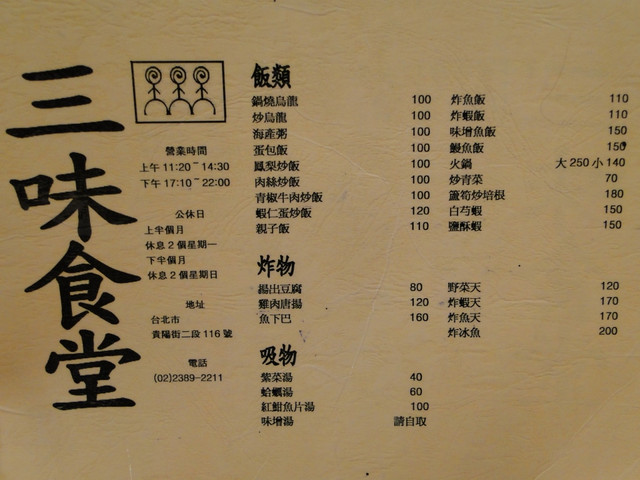 三味食堂
營業時間
上午 11:20~14:30
下午 17:10~22:00
公休日
上半個月
休息 2 個星期一
下半個月
休息 2 個星期日
地址
台北市
貴陽街二段 116 號
電話
(02)2389-2211
飯類
鍋燒烏龍 100
炒烏龍 100
海產粥 100
蛋包飯 100
鳳梨炒飯 100
肉絲炒飯 100
青椒牛肉炒飯 100
蝦仁蛋炒飯 120
親子飯 110
炸魚飯 110
炸蝦飯 110
味增魚飯 150
鰻魚飯 150
火鍋 大 250 小 140
炒青菜 70
蘆筍炒培根 180
白芍蝦 150
鹽酥蝦 150
炸物
揚出豆腐 80
雞肉唐揚 120
魚下巴 160
野菜天 120
炸蝦天 170
炸魚天 170
炸冰魚 200
吸物
紫菜湯 40
蛤蠣湯 60
紅魽魚片湯 100
味增湯 請自取